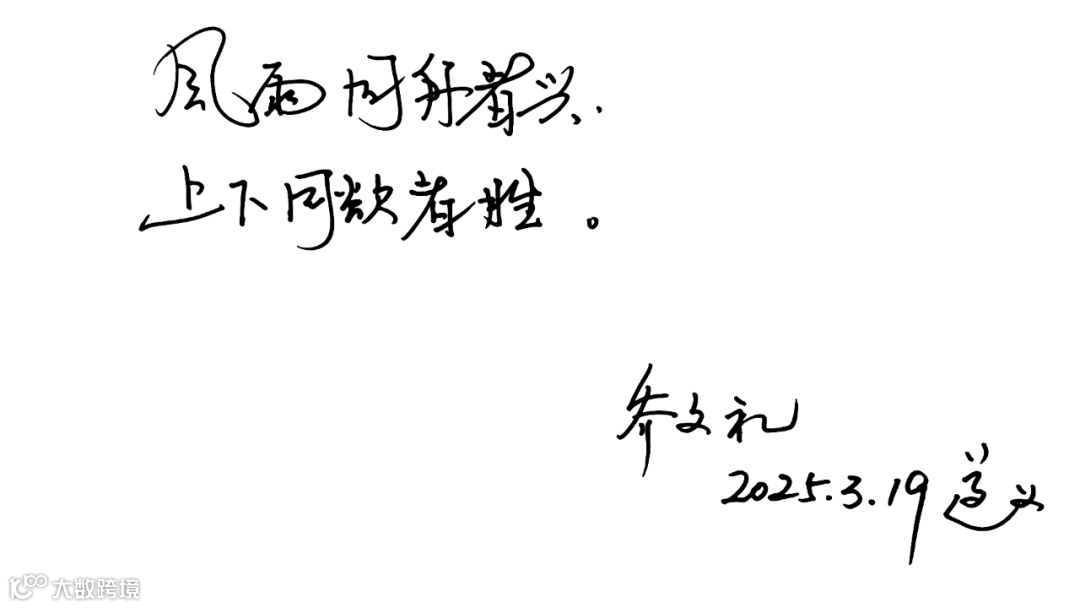 風雨同舟者兴.
上下同欲者胜。
乔文礼
2025.3.19 遵义
大数跨境